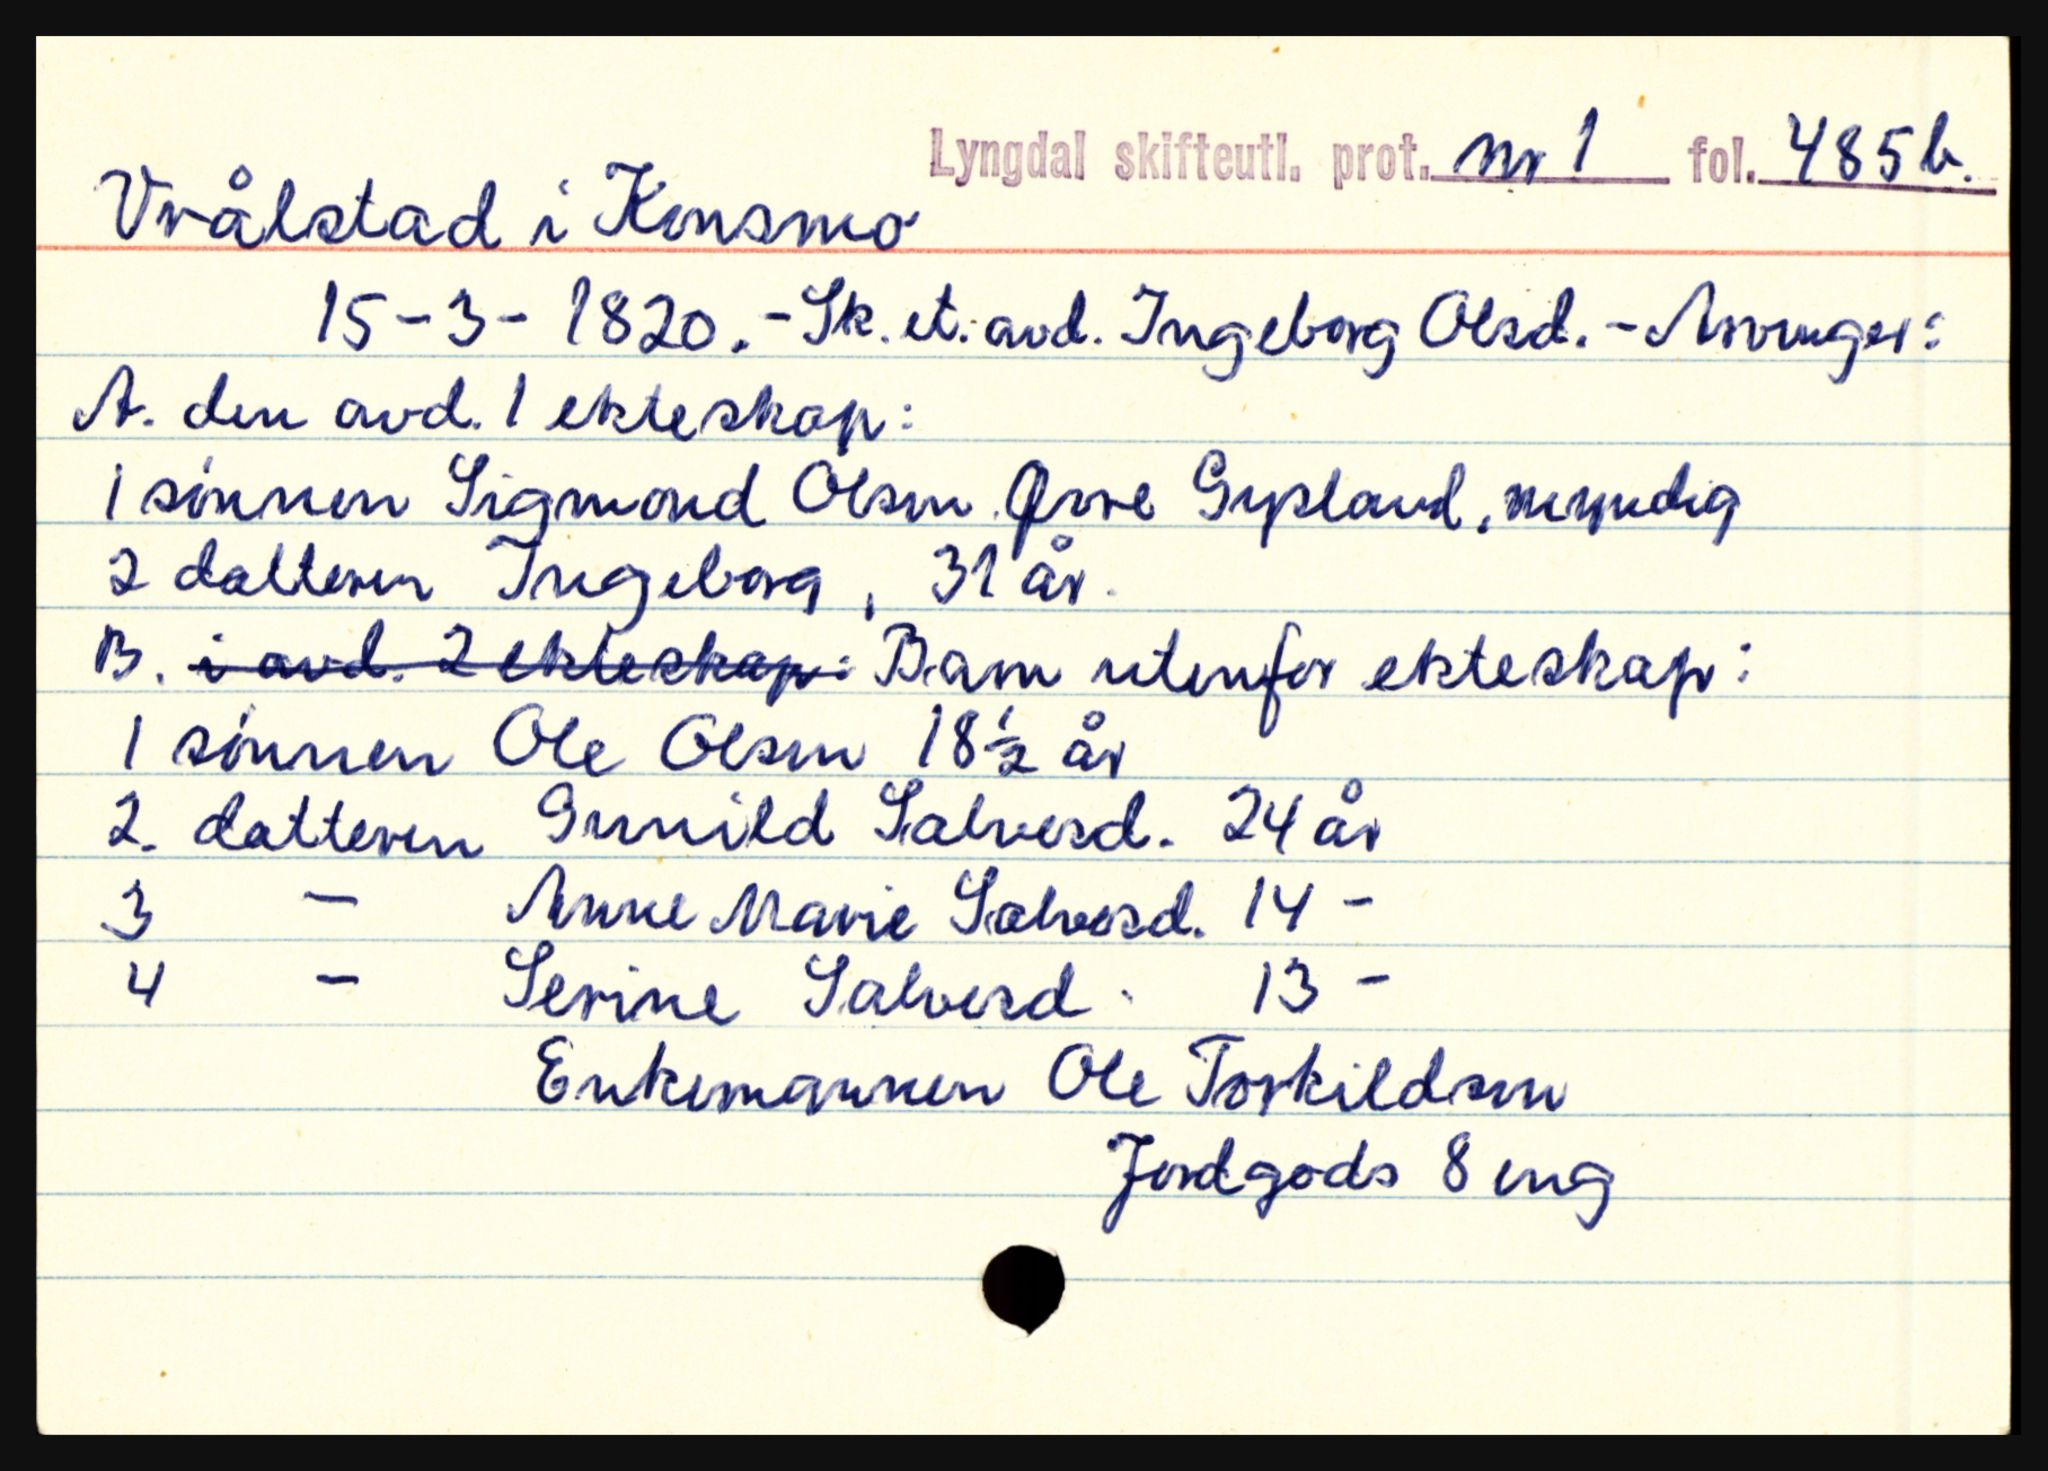 Lyngdal skifteutl. prot. nr 1 fol. 485b.
Vrålstad i Konsmo
15-3-1820. - Sk. et. avd. Ingeborg Olsd. - Arvinger:
A. den avd. 1 ekteskap:
1 sønnen Sigmond Olsen Øvre Gysland, myndig
2 datteren Ingeborg, 31 år.
B. i avd. 2 ekteskap: Barn utenfor ekteskap:
1 sønnen Ole Olsen 18½ år
2. datteren Gunild Salvesd. 24 år
3 - Anne Marie Salvesd. 14 -
4 - Serine Salvesd. 13 -
Enkemannen Ole Torkildsen
Jordgods 8 eng